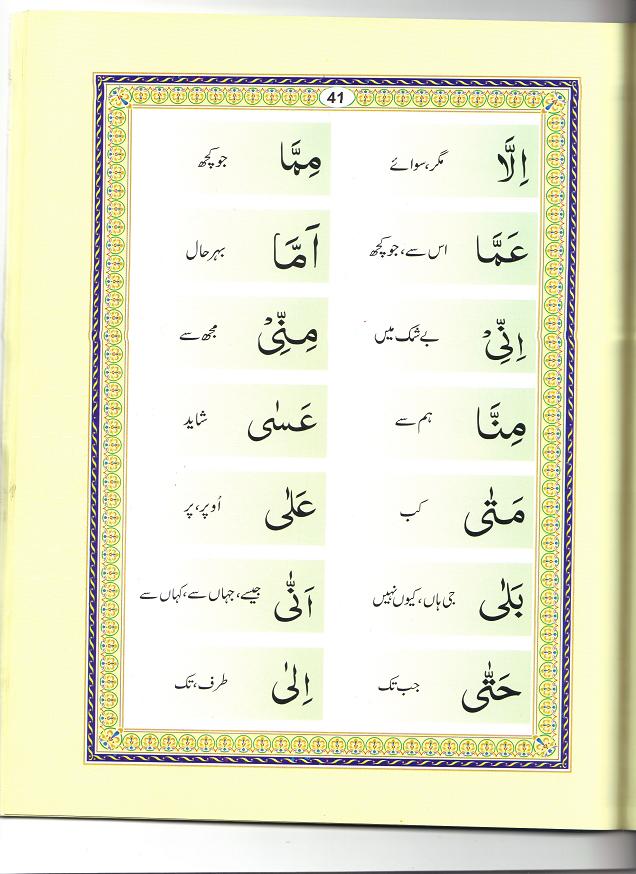 41
اِلَّا مگر، سوائے مِمَّا جو کچھ
عَمَّا اس سے، جو کچھ اَمَّا بہر حال
اِنِّیْ بے شک میں مِنِّیْ مجھ سے
مِنَّا ہم سے عَسٰی شاید
مَتٰی کب عَلٰی اُوپر، پر
بَلٰی جی ہاں، کیوں نہیں اَنّٰی جیسے، جہاں سے، کہاں سے
حَتّٰی جب تک اِلٰی طرف، تک